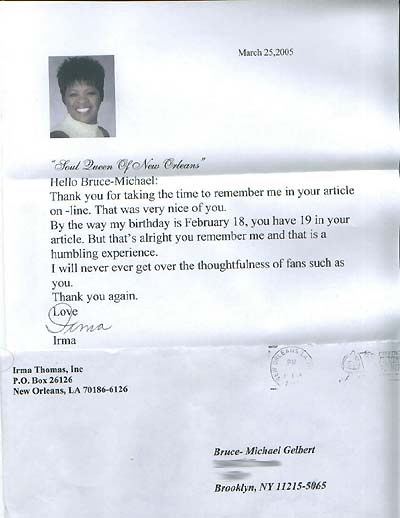 March 25,2005
"Soul Queen Of New Orleans"
Hello Bruce-Michael:
Thank you for taking the time to remember me in your article
on -line. That was very nice of you.
By the way my birthday is February 18, you have 19 in your
article. But that's alright you remember me and that is a
humbling experience.
I will never ever get over the thoughtfulness of fans such as
you.
Thank you again.
Love
Irma
Irma
Irma Thomas, Inc
P.O. Box 26126
New Orleans, LA 70186-6126
NEW ORLEANS
Bruce- Michael Gelbert
Brooklyn, NY 11215-5065